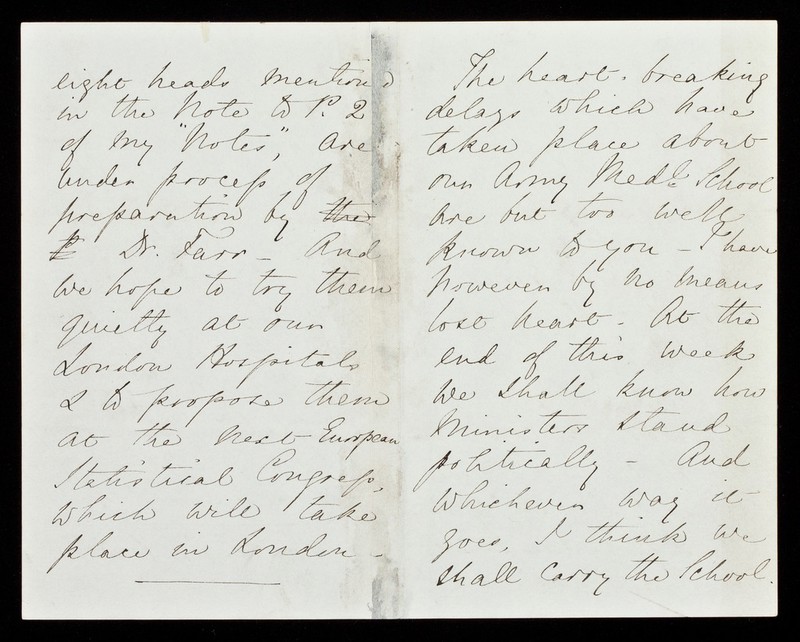 eight heads mentioned
in the Note to P. 2
of my "Notes", are
under process of
preparation by the
to Dr. Farr - And
we hope to try them
quietly at our
London Hospitals
& to propose them
at the next European
Statistical Congress,
which will take
place in London -
The heart-breaking
delays which have
taken place about
our Army Medl. School
are but too well
known to you - I have
however by no means
lost heart - At the
end of this week
we shall know how
Ministers stand
politically - And
whichever way it
goes, I think we
shall carry the School.